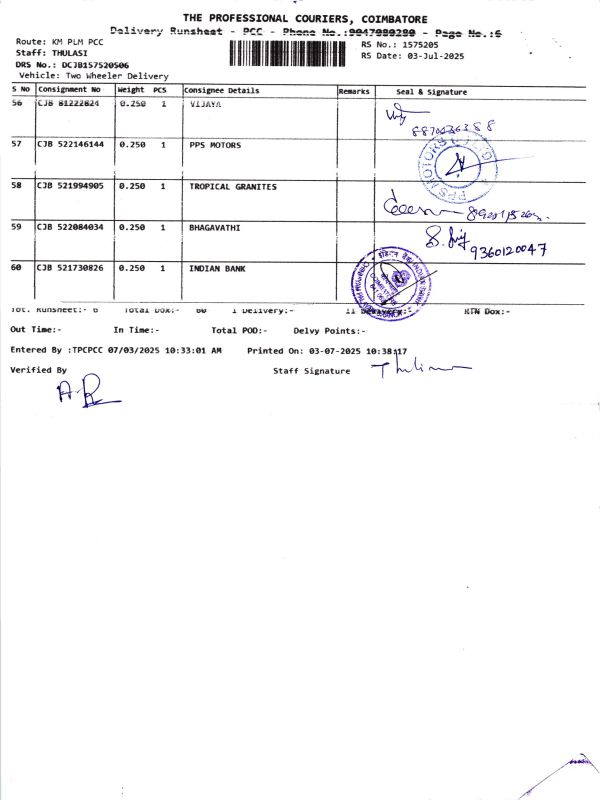 THE PROFESSIONAL COURIERS, COIMBATORE
Delivery Runsheet - PCC - Phone No.:9047000200 - Page No.:6
Route: KM PLM PCC
Staff: THULASI
DRS No.: DCJB157520506
Vehicle: Two Wheeler Delivery
RS No.: 1575205
RS Date: 03-Jul-2025
S No Consignment No Weight PCS Consignee Details Remarks Seal & Signature
56 CJB 81222824 0.250 1 VIJAYA
8870036388
57 CJB 522146144 0.250 1 PPS MOTORS
PPS MOTORS
58 CJB 521994905 0.250 1 TROPICAL GRANITES
59 CJB 522084034 0.250 1 BHAGAVATHI
9360120047
60 CJB 521730826 0.250 1 INDIAN BANK
इंडियन बैंक INDIAN BANK
Tot. Runsheet:- 6 Total Dox:- 60 1 Delivery:- II Delivery:- RTN Dox:-
Out Time:- In Time:- Total POD:- Delvy Points:-
Entered By :TPCPCC 07/03/2025 10:33:01 AM Printed On: 03-07-2025 10:38:17
Verified By Staff Signature